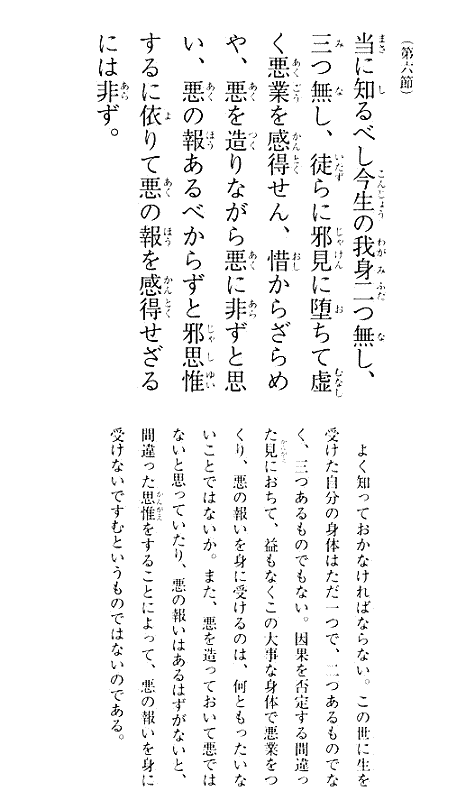 （第六節）
当に知るべし今生の我身二つ無し、
三つ無し、徒らに邪見に堕ちて虚
く悪業を感得せん、惜からざらめ
や、悪を造りながら悪に非ずと思
い、悪の報あるべからずと邪思惟
するに依りて悪の報を感得せざる
には非ず。
よく知っておかなければならない。この世に生を
受けた自分の身体はただ一つで、二つあるものでな
く、三つあるものでもない。因果を否定する間違っ
た見におちて、益もなくこの大事な身体で悪業をつ
くり、悪の報いを身に受けるのは、何ともったいな
いことではないか。また、悪を造っておいて悪では
ないと思っていたり、悪の報いはあるはずがないと、
間違った思惟をすることによって、悪の報いを身に
受けないですむというものではないのである。